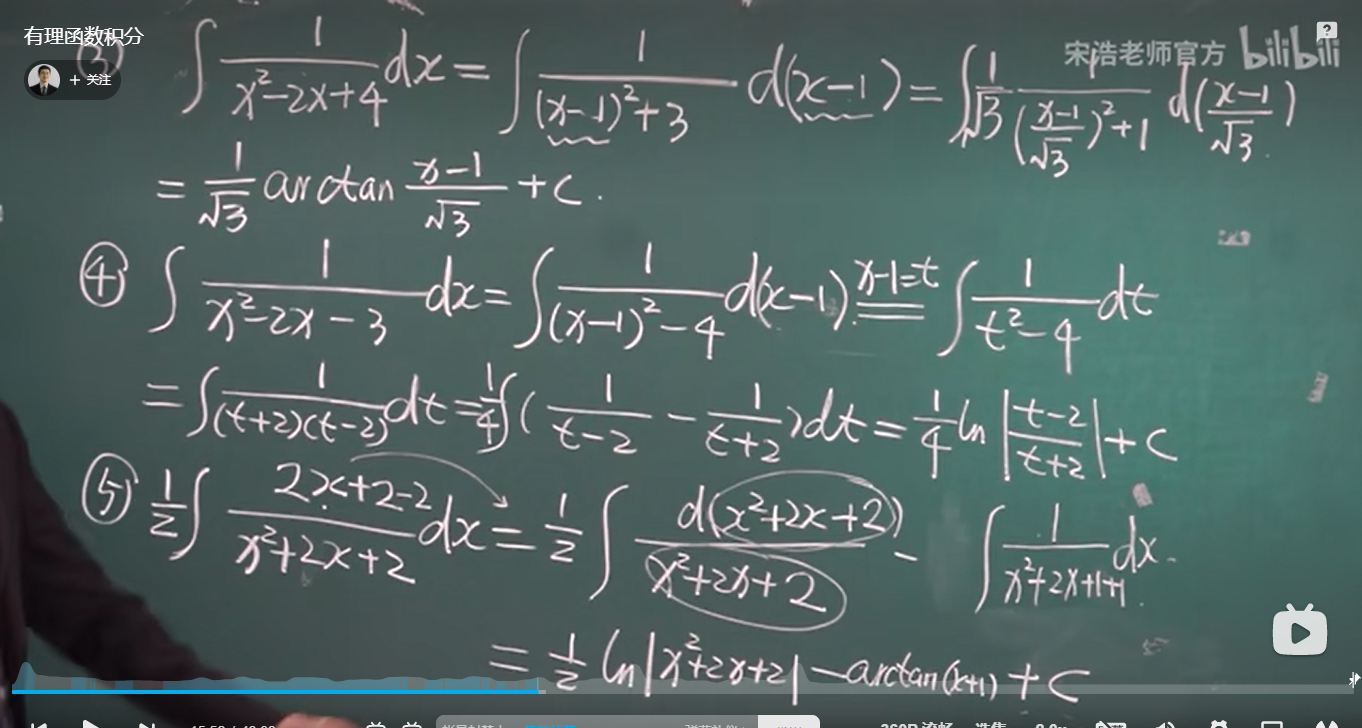 有理函数积分
宋浩老师官方 bilibili
+ 关注
③ ∫ 1/(x²-2x+4) dx = ∫ 1/((x-1)²+3) d(x-1) = ∫ 1/√3 1/(((x-1)/√3)²+1) d((x-1)/√3)
= 1/√3 arctan (x-1)/√3 + C.
④ ∫ 1/(x²-2x-3) dx = ∫ 1/((x-1)²-4) d(x-1) x-1=t ∫ 1/(t²-4) dt
= ∫ 1/((t+2)(t-2)) dt = 1/4 ∫ (1/(t-2) - 1/(t+2)) dt = 1/4 ln |(t-2)/(t+2)| + C
⑤ 1/2 ∫ (2x+2-2)/(x²+2x+2) dx = 1/2 ∫ d(x²+2x+2)/(x²+2x+2) - ∫ 1/(x²+2x+1+1) dx.
= 1/2 ln |x²+2x+2| - arctan(x+1) + C
360P 流畅 选集